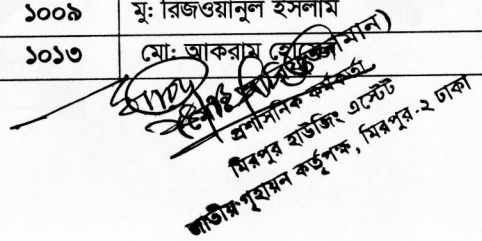 ১০০৯ মু: রিজওয়ানুল ইসলাম
১০১৩ মো: আকরাম হোসেন
প্রশাসনিক কর্মকর্তা
মিরপুর হাউজিং এস্টেট
জাতীয় গৃহায়ন কর্তৃপক্ষ, মিরপুর-২ ঢাকা